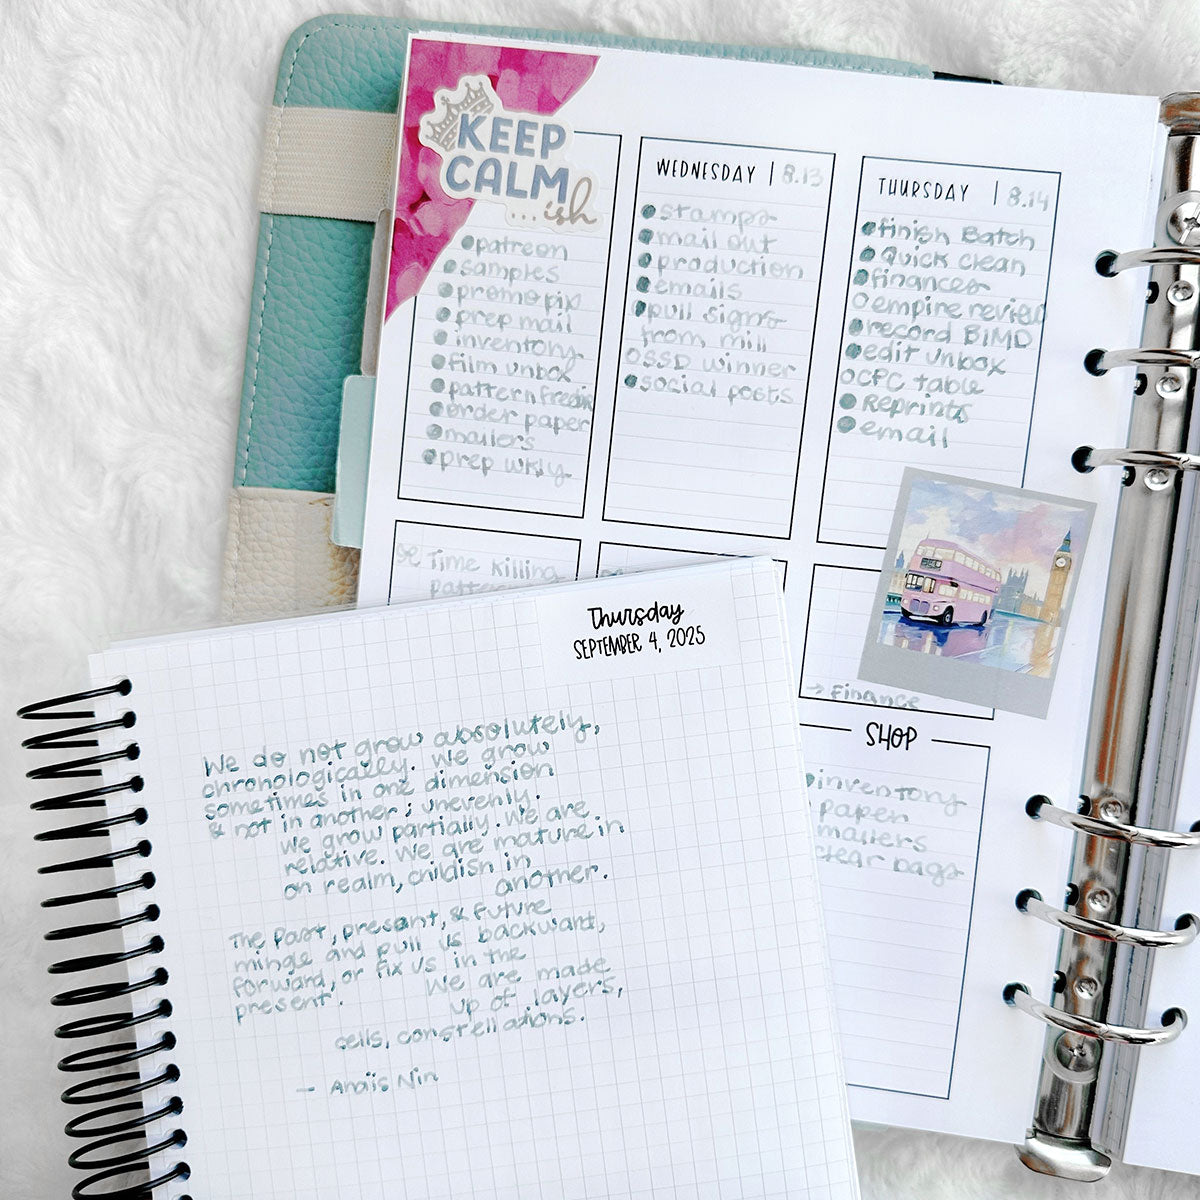 KEEP
CALM
...ish
patreon
samples
promo pix
prep mail
inventory
film unbox
pattern
order paper
mailers
prep wkly
WEDNESDAY | 8.13
stamps
mail out
production
emails
pull signs
from mill
SSD winner
social posts
THURSDAY | 8.14
finish Batch
Quick clean
finances
empire review
record BIMD
edit unbox
CPC table
Reprints
email
Time Killing
→ Finance
SHOP
inventory
paper
mailers
clear bags
Thursday
SEPTEMBER 4, 2025
We do not grow absolutely,
chronologically. We grow
sometimes in one dimension
& not in another; unevenly.
We grow partially. We are
relative. We are mature in
on realm, childish in
another.
The Past, present, & Future
mingle and pull us backward,
forward, or fix us in the
present. We are made
up of layers,
cells, constellations.
— Anaïs Nin